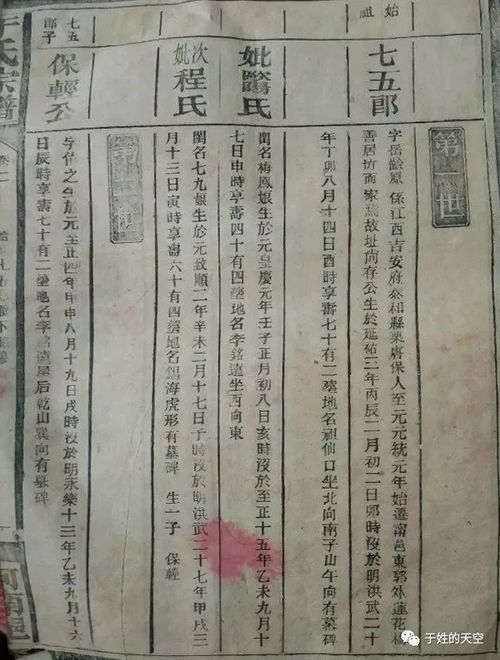 始祖
第一世
七五郎
字岳 原係江西吉安府泰和縣栗唐保人至元元統元年始遷甯邑東郭外蓮花橋
善居坊而家焉故址尚存公生於延祐三年丙辰二月初二日卯時沒於明洪武二十
年丁卯八月十四日酉時享壽七十有二塟地名祖仙口坐北向南子山午向有墓碑
妣 氏
閨名梅鳳娘生於元皇慶元年壬子正月初八日亥時沒於至正十五年乙未九月十
七日申時享壽四十有四塟地名李銘遠坐西向東
次妣程氏
閨名七九娘生於元致順二年辛未二月十七日子時沒於明洪武二十七年甲戌三
月十三日寅時享壽六十有四塟地名錫海虎形有墓碑 生一子 保輕
第二世
七五郎子
保輕公
字 之生於元至正四年甲申八月十九日戌時沒於明永樂十三年乙未九月十六
日辰時享壽七十有二塟地名李銘遠屋后乾山巽向有墓碑
氏宗譜
卷一
河南
于姓的天空